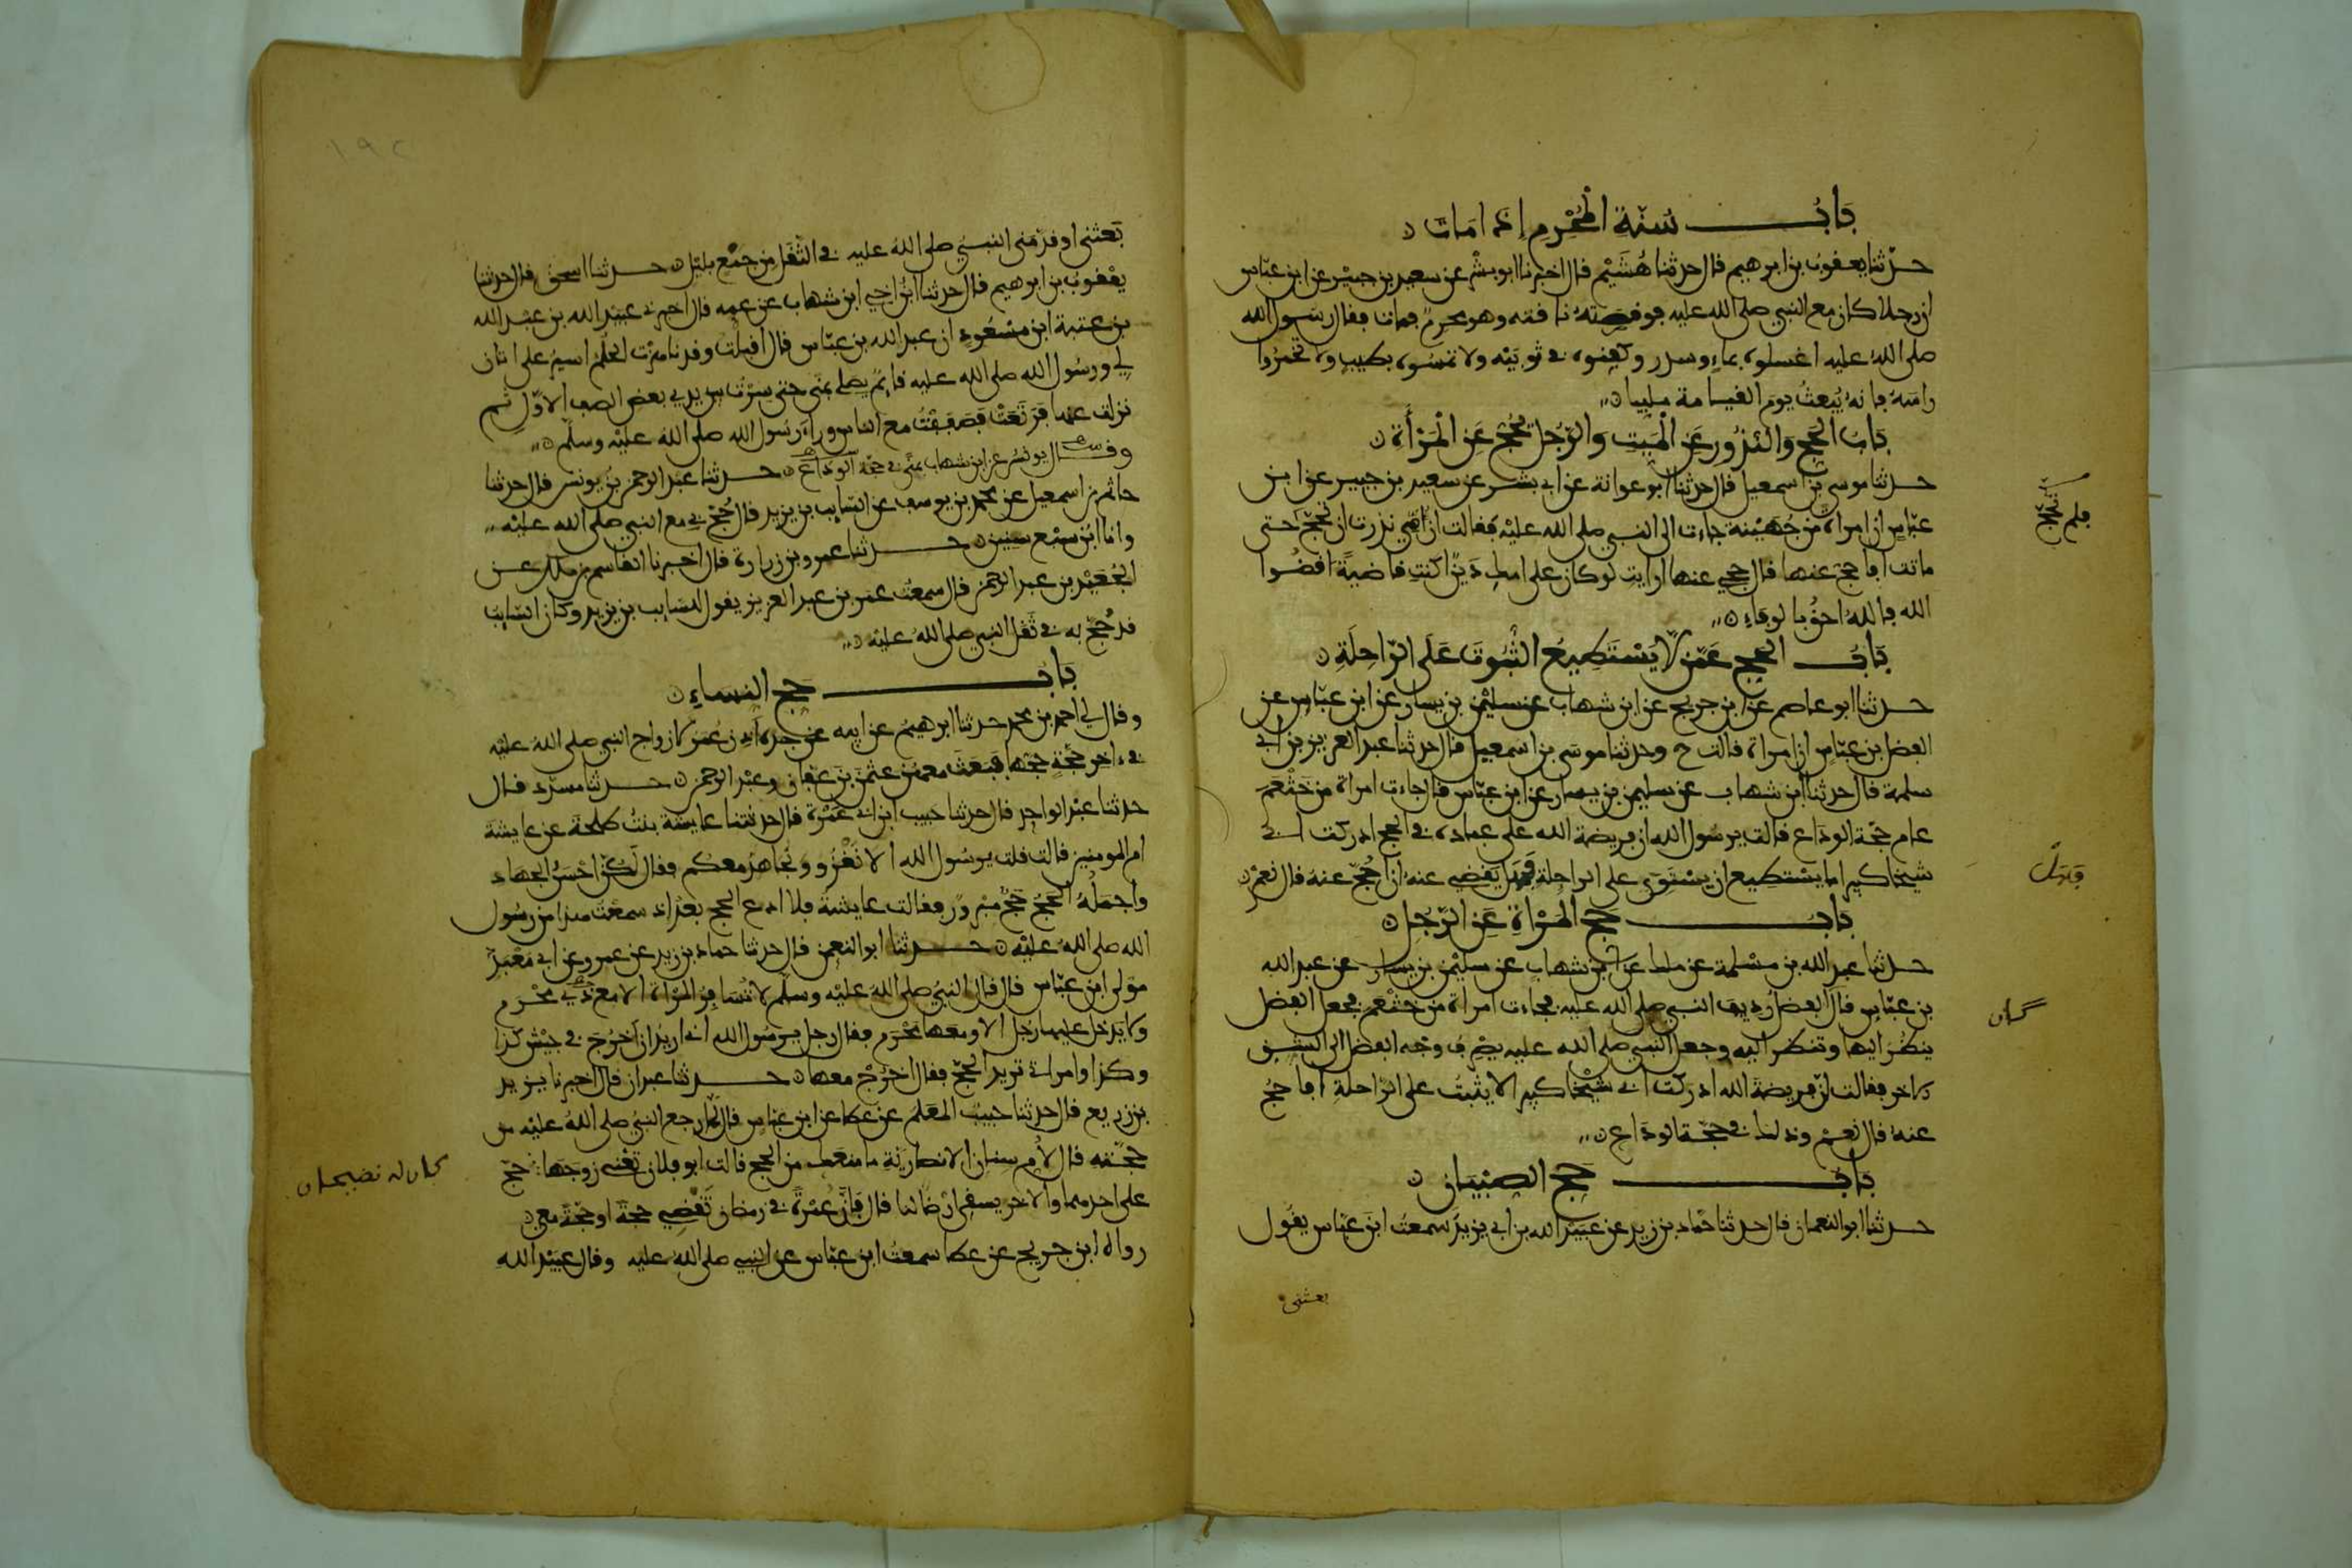 باب سُنّة المُحْرِمِ إذا مَاتَ
حدثنا يعقوبُ بن ابرهيم قال حدثنا هُشَيْم قال اخبرنا ابو بشْر عن سعيد بن جبيْر عن ابن عبّاس
ان رجلا كان مع النبي صلى الله عليه فوقصته ناقته وهو محرمٌ فمات فقال رسول الله
صلى اللهُ عليه اغسلوه بماءٍ وسدر وكفنوه في ثوبَيْه ولا تمسّوه بطيبٍ ولا تخمّرُوا
راسَهُ فانهُ يُبعثُ يومَ القيامة ملبيا
بَابُ الحج وَالنذُورِ عَنِ الْمَيِت وَالرّجُل يَحُجّ عَنِ الْمَرْأَةِ
حدثنا موسى بن اسمعيل قال حدثنا ابو عوانة عن ابي بشر عن سعيد بن جبير عن ابن
عبّاسٍ ان امراة من جُهَيْنة جاءت الى النبي صلى الله عليْه فقالت ان أمّي نذرت ان تحجّ حتى
فلم تحجّ
ماتت افاحج عنها قال حجي عنها ارايتِ لو كان على امك دَيْنٌ اكنتِ قاضيةً اقضُوا
الله فاللهُ احقُّ بالوفاء
بَابُ الحج عَمّن لا يَسْتَطِيعُ الثّبُوتَ عَلَى الرّاحِلَةِ
حدثنا ابو عاصم عن ابن جريج عن ابن شهاب عن سليمن بن يسار عن ابن عبّاس عن
الفضل بن عبّاس ان امراة قالت ح وحدثنا موسى بن اسمعيل قال حدثنا عبد العزيز بن ابي
سلمة قال حدثنا ابن شهاب عن سليمن بن يسار عن ابن عبّاس قال جاءت امراة من خَثْعَم
عام حجّة الودَاع قالت يرسُول الله ان فريضة الله على عباده في الحج ادركت ابي
شيخا كبيرا ما يستطيع ان يستوي على الراحلة فهل يقضي عنهُ ان احُجّ عنهُ قال نعمْ
فهل
بابُ حج المَرْاةِ عَنِ الرّجُلِ
حدثنا عبد الله بن مسْلمة عن ملك عن ابن شهاب عن سليْمن بن يسار عن عبد الله
بن عبّاس قال الفضل رديف النبي صلى الله عليه فجاءت امراة من خثعم فجعل الفضل
كان
ينظُر اليها وتنظر اليه وجعل النبي صلى الله عليه يصرف وجه الفضل الى الشق
الاخر فقالت ان فريضة الله ادركت ابي شيْخا كبيرا لا يثبتُ على الرّاحلةِ افاحجُ
عنهُ قال نعم وذلك في حجّة الودَاع
بابُ حج الصبْيَان
حدثنا ابو النعمان قال حدثنا حمّاد بن زيد عن عُبيْد الله بن ابي يزيد سمعتُ ابن عبّاس يقول
بعثني
١٩٢
بَعثني او قدّمني النبيُ صلى اللهُ عليه في الثّقَل من جَمْع بليْل حدثنا اسحق قال حدثنا
يعْقوبُ بن ابرهيم قال حدثنا ابنُ اخي ابن شهاب عن عمه قال اخبرني عبيْد الله بن عبْد الله
بن عتبة ابن مسْعُودٍ ان عبد الله بن عبّاس قال اقبلت وقد ناهزْت الحلُم اسيرُ على اتان
لي ورسُول الله صلى الله عليه قايمٌ يصَلي بمنًى حتى سِرْت بين يدي بعض الصف الاوّل ثم
نزلت عنها فرَتَعَتْ فصَفَفْتُ مع الناس وراءَ رسُول الله صلى الله عليْه وسلّم
وقال يونسُ عن ابن شهاب بمنًى في حجّة الودَاع حدثنا عبْد الرحمن بنُ يونس قال حدثنا
حاتم بن اسمعيل عن محمد بن يوسف عن السّايب بن يزيد قال حُجَّ بي مع النبي صلى الله عليْه
وانا ابنُ سبْع سنين حدثنا عمرو بن زرارة قال اخبرنا القاسم بن ملك عن
الجُعَيْد بن عبد الرحمن قال سمعتُ عمَر بن عبد العزيز يقول للسّايب بن يزيد وكان السّايبُ
قد حُجّ به في ثَقَل النبي صلى اللهُ عليْه
بَابُ حج النسَاءِ
وقال لي احمد بن محمد حدثنا ابرهيمُ عن ابيه عن جدّه أذِن عُمَرُ لازواج النبي صلى اللهُ عليْه
في ءاخر حجّةٍ حجّها فبعثَ معهن عثمن بن عفان وعبْد الرحمن حدثنا مسدّد قال
حدثنا عبْد الواحد قال حدثنا حبيب ابن ابي عَمْرة قال حدثتنا عايشة بنتُ طلحة عن عايشة
ام المومنين قالت قلت يرسُول الله الا نغْزُو ونجاهدُ معكم فقال لَكُنّ احْسَنُ الجهاد
واجْملُهُ الحجُ حَجٌ مبْرورٌ فقالت عايشة فلا ادع الحج بعْد اذ سمعْت هذا من رسُول
الله صلى اللهُ عليْه حدثنا ابو النعمن قال حدثنا حماد بن زيد عن عمرو عن ابي مَعْبَدٍ
مَوْلى ابن عبّاس قال قال النبيُ صلى اللهُ عليْه وسلّم لا تُسَافِرُ المَرْاة الا مع ذي محْرم
ولا يَدخل عليها رجل الا ومعَها مَحْرَم فقال رجل يرسُول الله اني اريدُ ان اخرُجَ في جيْش كذا
وكذا وامراتي تريد الحجّ فقال اخرُجْ معها حدثنا عبدان قال اخبرنا يزيد
بن زريع قال حدثنا حبيبٌ المعَلم عن عطا عن ابن عبّاسٍ قال لمّا رجع النبيُ صلى اللهُ عليْه من
حجّته قال لأُم سنان الانصاريّة ما منعَك من الحج قالت ابو فلان تعْني زوجَها حجّ
كان له ناضحان
على احدهما والاخر يسقي ارْضًا لنا قال فَاِنّ عُمْرةً في رمضان تَقْضي حجّةً او حجّةً معي
رواه ابن جريج عن عطا سمعتُ ابن عبّاس عن النبي صلى الله عليه وقال عبيْد الله